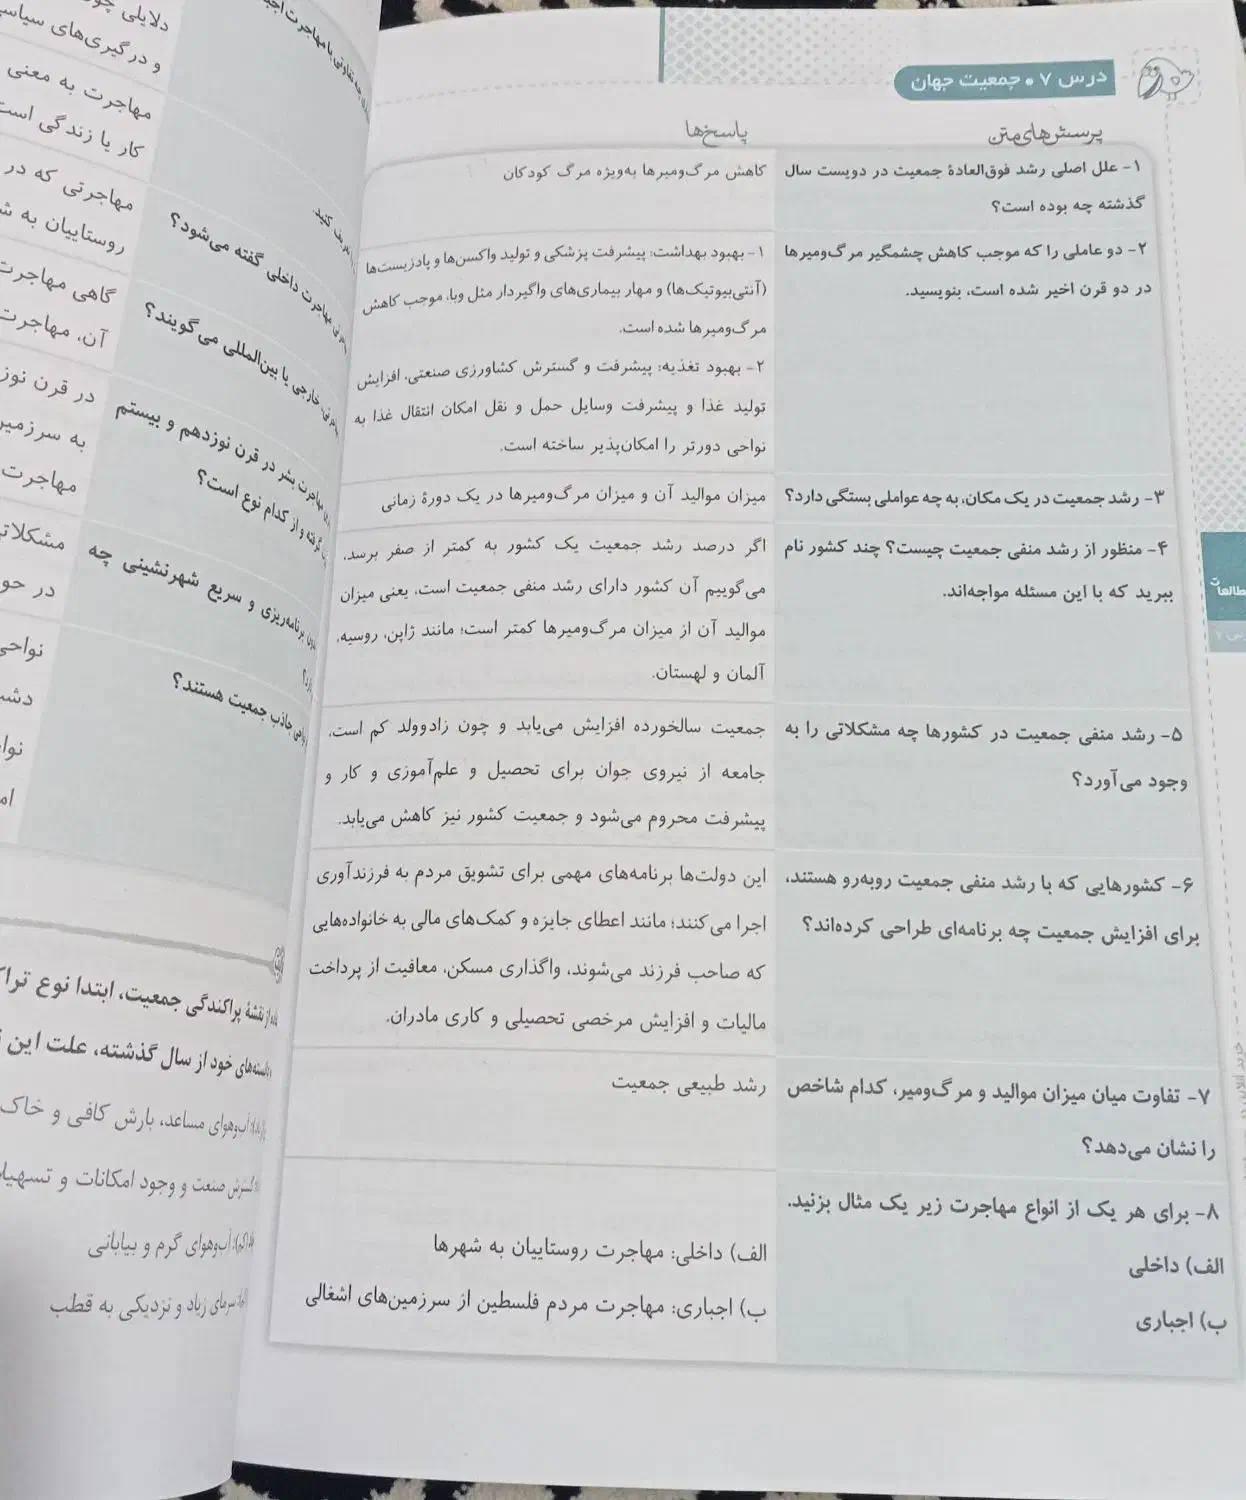 درس ۷ • جمعیت جهان
پرسش‌های متن
پاسخ‌ها
۱- علل اصلی رشد فوق‌العادهٔ جمعیت در دویست سال
گذشته چه بوده است؟
کاهش مرگ‌ومیرها به‌ویژه مرگ کودکان
۲- دو عاملی را که موجب کاهش چشمگیر مرگ‌ومیرها
در دو قرن اخیر شده است، بنویسید.
۱- بهبود بهداشت: پیشرفت پزشکی و تولید واکسن‌ها و پادزیست‌ها
(آنتی‌بیوتیک‌ها) و مهار بیماری‌های واگیردار مثل وبا، موجب کاهش
مرگ‌ومیرها شده است.
۲- بهبود تغذیه: پیشرفت و گسترش کشاورزی صنعتی، افزایش
تولید غذا و پیشرفت وسایل حمل و نقل امکان انتقال غذا به
نواحی دورتر را امکان‌پذیر ساخته است.
۳- رشد جمعیت در یک مکان، به چه عواملی بستگی دارد؟
میزان موالید آن و میزان مرگ‌ومیرها در یک دورهٔ زمانی
۴- منظور از رشد منفی جمعیت چیست؟ چند کشور نام
ببرید که با این مسئله مواجه‌اند.
اگر درصد رشد جمعیت یک کشور به کمتر از صفر برسد،
می‌گوییم آن کشور دارای رشد منفی جمعیت است، یعنی میزان
موالید آن از میزان مرگ‌ومیرها کمتر است؛ مانند ژاپن، روسیه،
آلمان و لهستان.
۵- رشد منفی جمعیت در کشورها چه مشکلاتی را به
وجود می‌آورد؟
جمعیت سالخورده افزایش می‌یابد و چون زادوولد کم است،
جامعه از نیروی جوان برای تحصیل و علم‌آموزی و کار و
پیشرفت محروم می‌شود و جمعیت کشور نیز کاهش می‌یابد.
۶- کشورهایی که با رشد منفی جمعیت روبه‌رو هستند،
برای افزایش جمعیت چه برنامه‌ای طراحی کرده‌اند؟
این دولت‌ها برنامه‌های مهمی برای تشویق مردم به فرزندآوری
اجرا می‌کنند؛ مانند اعطای جایزه و کمک‌های مالی به خانواده‌هایی
که صاحب فرزند می‌شوند، واگذاری مسکن، معافیت از پرداخت
مالیات و افزایش مرخصی تحصیلی و کاری مادران.
۷- تفاوت میان میزان موالید و مرگ‌ومیر، کدام شاخص
را نشان می‌دهد؟
رشد طبیعی جمعیت
۸- برای هر یک از انواع مهاجرت زیر یک مثال بزنید.
الف) داخلی
ب) اجباری
الف) داخلی: مهاجرت روستاییان به شهرها
ب) اجباری: مهاجرت مردم فلسطین از سرزمین‌های اشغالی
و درگیری‌های
مهاجرت به معنی
کار یا زندگی است
تعریف کنید.
مهاجرتی که در
روستاییان به
مهاجرت داخلی گفته می‌شود؟
گاهی مهاجرت
آن، مهاجرت
خارجی یا بین‌المللی می‌گویند؟
در قرن
به
مهاجرت
مهاجرت بشر در قرن نوزدهم و بیستم
گرفته و از کدام نوع است؟
در
برنامه‌ریزی و سریع شهرنشینی چه
جاذب جمعیت هستند؟
از نقشهٔ پراکندگی جمعیت، ابتدا نوع
خود از سال گذشته، علت این
آب‌وهوای مساعد، بارش کافی و خاک
گسترش صنعت و وجود امکانات و
آب‌وهوای گرم و بیابانی
سرمای زیاد و نزدیکی به قطب